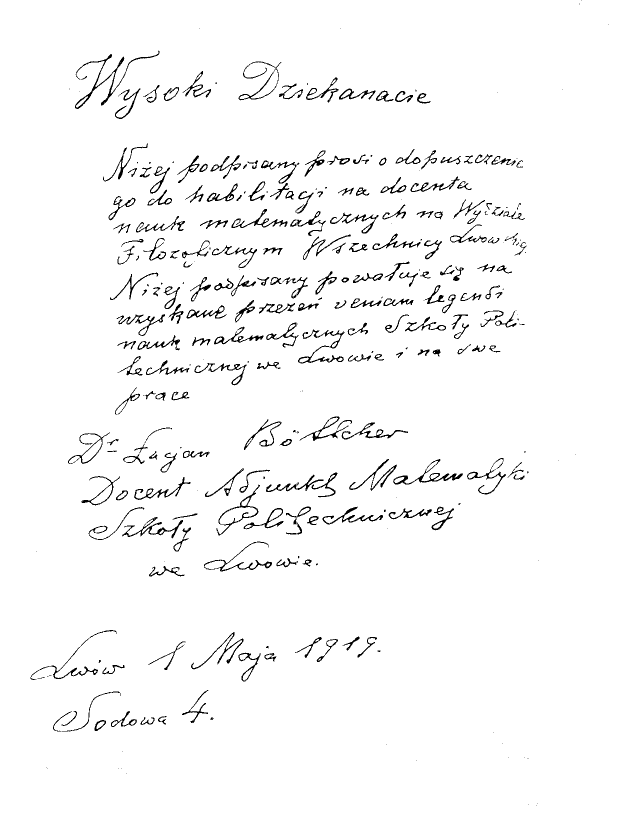 Wysoki Dziekanacie
Niżej podpisany prosi o dopuszczenie
go do habilitacji na docenta
nauk matematycznych na Wydziale
Filozoficznym Wszechnicy Lwowskiej.
Niżej podpisany powołuje się na
uzyskaną przezeń veniam legendi
nauk matematycznych Szkoły Poli-
technicznej we Lwowie i na swe
prace
Dr Łucjan Böttcher
Docent Adjunkt Matematyki
Szkoły Politechnicznej
we Lwowie.
Lwów 1 Maja 1919.
Sodowa 4.